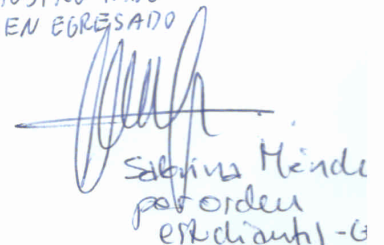 EN EGRESADO
Sabrina Ménde
por orden
estudiantil - G